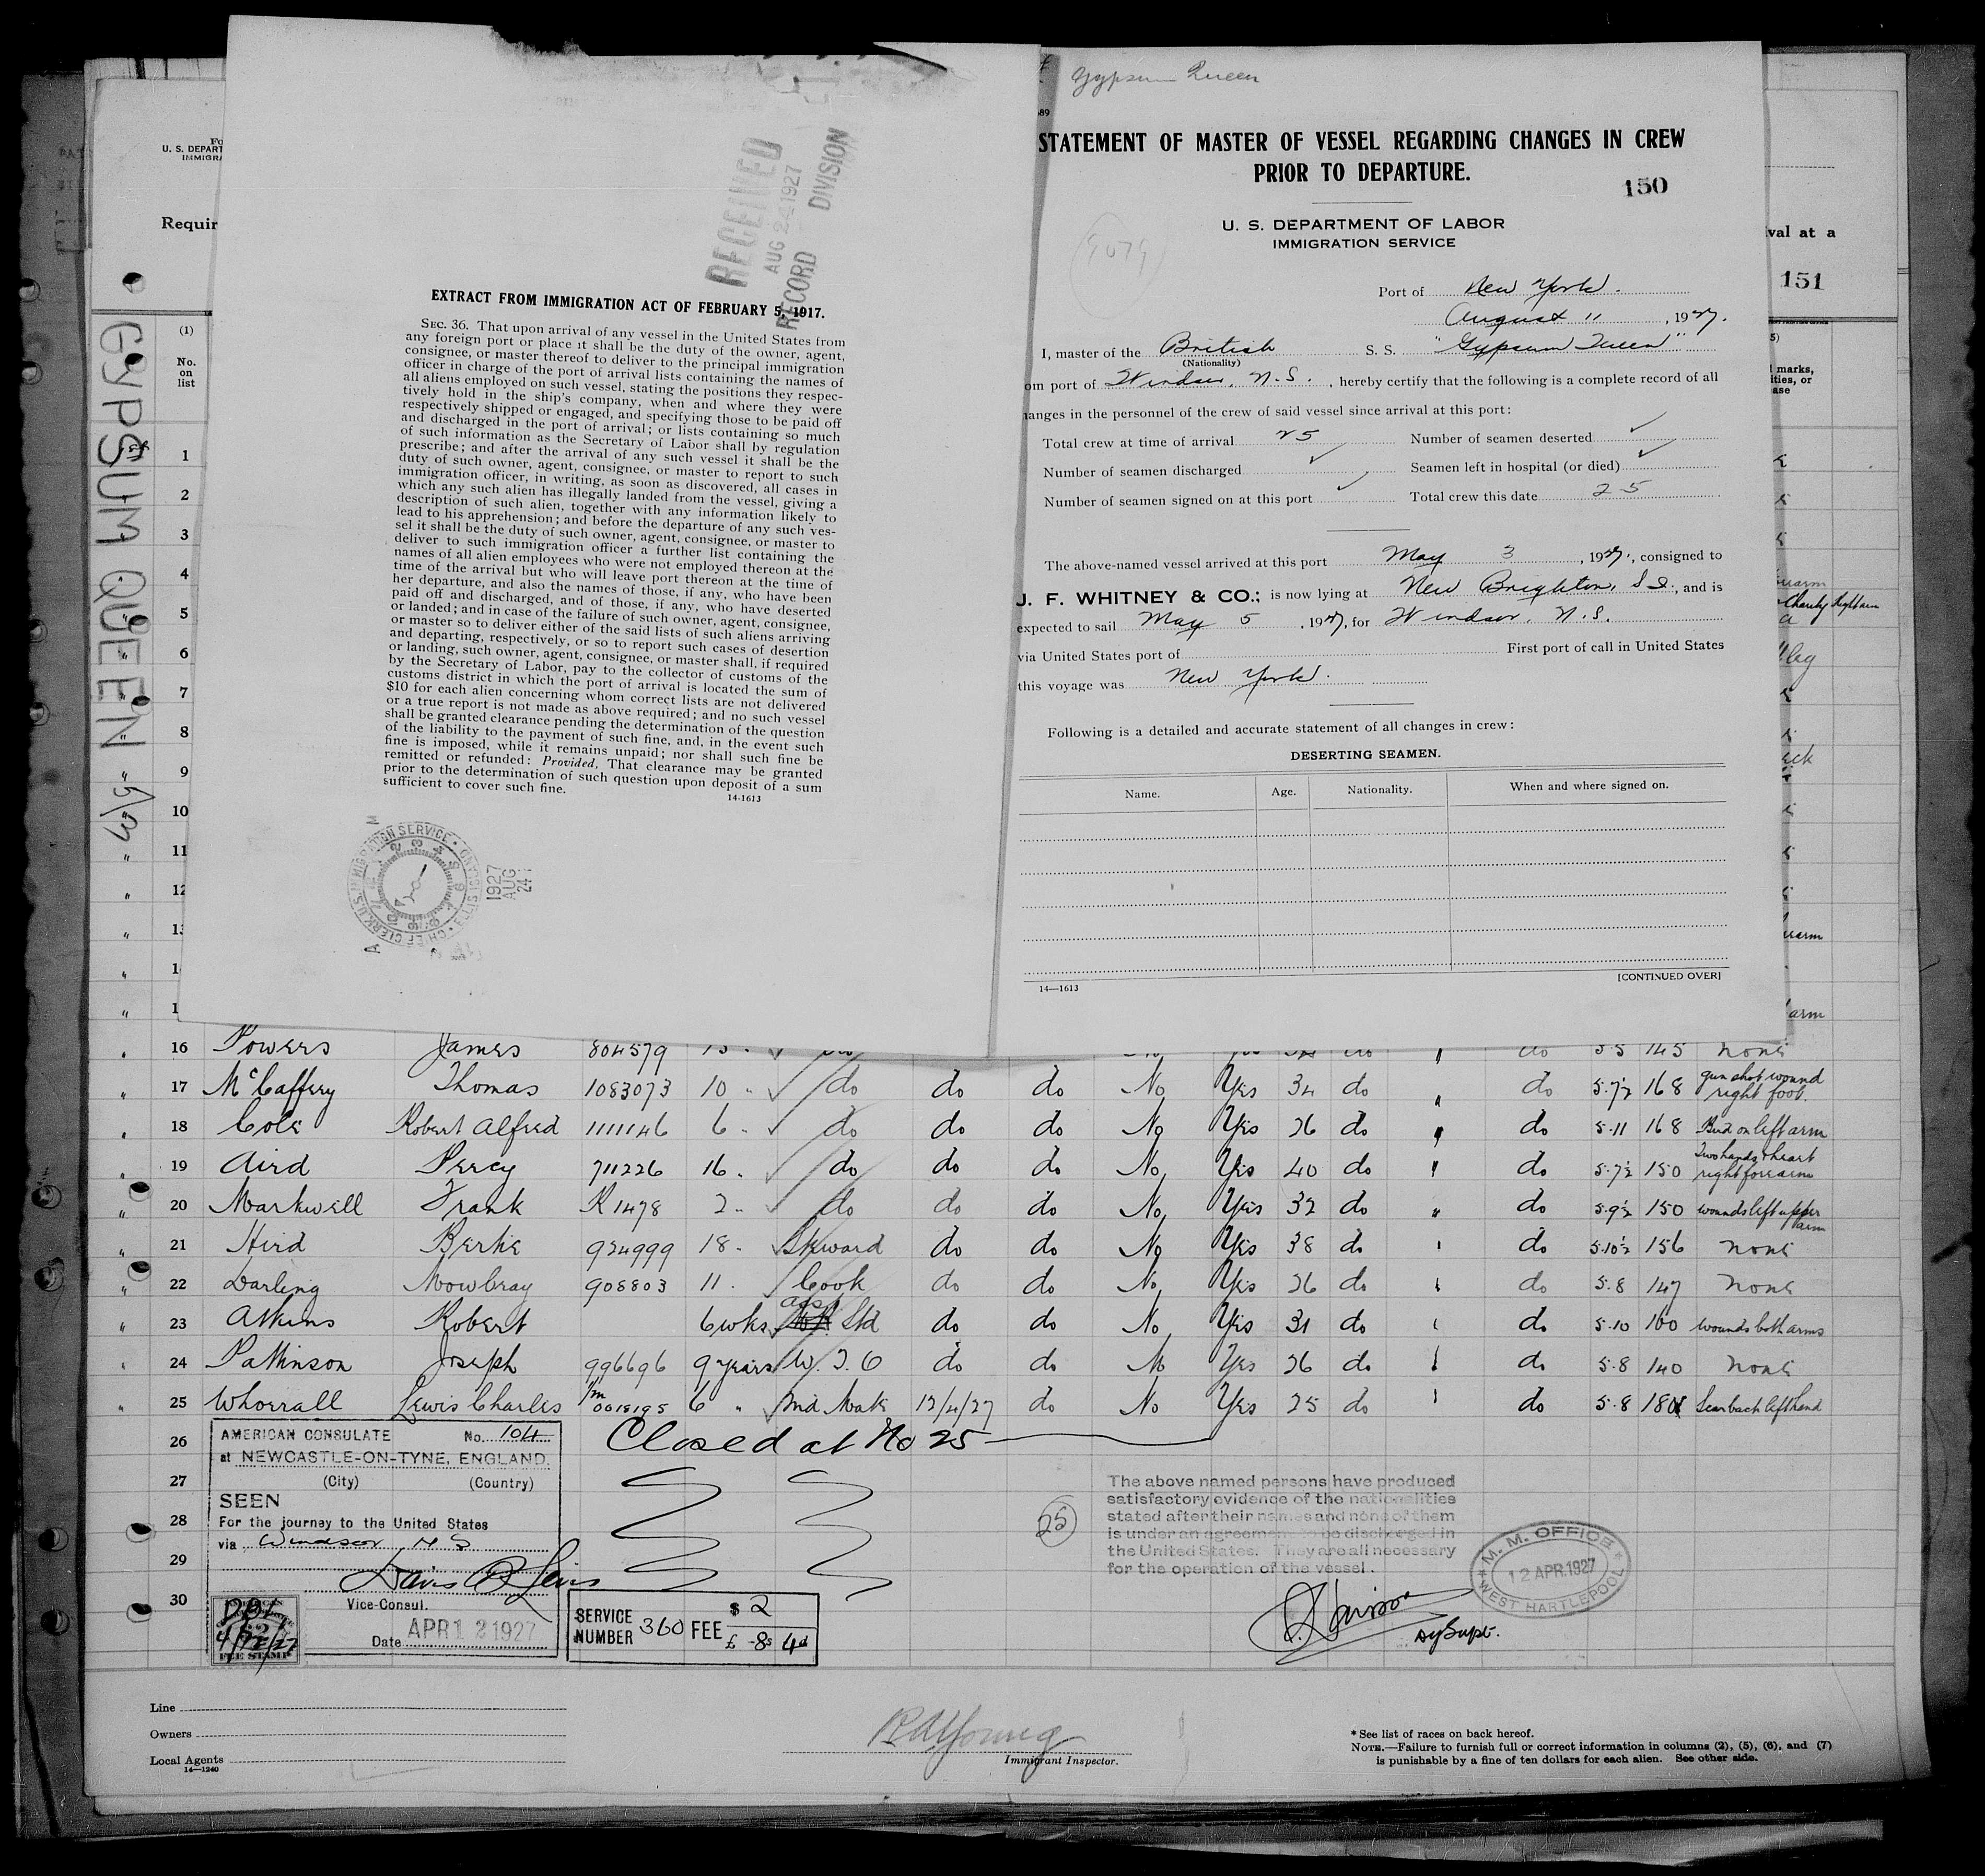 Gypsum Queen
STATEMENT OF MASTER OF VESSEL REGARDING CHANGES IN CREW
PRIOR TO DEPARTURE.
150
U. S. DEPARTMENT OF LABOR
IMMIGRATION SERVICE
Port of New York.
August 11, 1927.
I, master of the British S. S. "Gypsum Queen"
(Nationality)
om port of Windsor, N.S., hereby certify that the following is a complete record of all
anges in the personnel of the crew of said vessel since arrival at this port:
Total crew at time of arrival 25 Number of seamen deserted ✓
Number of seamen discharged ✓ Seamen left in hospital (or died) ✓
Number of seamen signed on at this port ✓ Total crew this date 25
The above-named vessel arrived at this port May 3, 1927, consigned to
J. F. WHITNEY & CO.; is now lying at New Brighton, S.I., and is
expected to sail May 5, 1927, for Windsor, N.S.
via United States port of First port of call in United States
this voyage was New York.
Following is a detailed and accurate statement of all changes in crew:
DESERTING SEAMEN.
Name. Age. Nationality. When and where signed on.
[CONTINUED OVER]
14—1613
RECEIVED
AUG 24 1927
RECORD DIVISION
EXTRACT FROM IMMIGRATION ACT OF FEBRUARY 5, 1917.
SEC. 36. That upon arrival of any vessel in the United States from
any foreign port or place it shall be the duty of the owner, agent,
consignee, or master thereof to deliver to the principal immigration
officer in charge of the port of arrival lists containing the names of
all aliens employed on such vessel, stating the positions they respec-
tively hold in the ship's company, when and where they were
respectively shipped or engaged, and specifying those to be paid off
and discharged in the port of arrival; or lists containing so much
of such information as the Secretary of Labor shall by regulation
prescribe; and after the arrival of any such vessel it shall be the
duty of such owner, agent, consignee, or master to report to such
immigration officer, in writing, as soon as discovered, all cases in
which any such alien has illegally landed from the vessel, giving a
description of such alien, together with any information likely to
lead to his apprehension; and before the departure of any such ves-
sel it shall be the duty of such owner, agent, consignee, or master to
deliver to such immigration officer a further list containing the
names of all alien employees who were not employed thereon at the
time of the arrival but who will leave port thereon at the time of
her departure, and also the names of those, if any, who have been
paid off and discharged, and of those, if any, who have deserted
or landed; and in case of the failure of such owner, agent, consignee,
or master so to deliver either of the said lists of such aliens arriving
and departing, respectively, or so to report such cases of desertion
or landing, such owner, agent, consignee, or master shall, if required
by the Secretary of Labor, pay to the collector of customs of the
customs district in which the port of arrival is located the sum of
$10 for each alien concerning whom correct lists are not delivered
or a true report is not made as above required; and no such vessel
shall be granted clearance pending the determination of the question
of the liability to the payment of such fine, and, in the event such
fine is imposed, while it remains unpaid; nor shall such fine be
remitted or refunded: Provided, That clearance may be granted
prior to the determination of such question upon deposit of a sum
sufficient to cover such fine.
14-1613
1927
AUG
24
U. S. DEPART
IMMIGRA
Requir
val at a
151
(1)
No.
on
list
GYPSUM QUEEN 5/3
1
2
3
4
5
6
7
8
9
10
11
12
16 Powers James 804579 5.5 145 none
17 McCaffery Thomas 1083073 10 " ✓ do do do No Yes 34 do " do 5.7½ 168 gun shot wound right foot.
18 Cole Robert Alfred 1111146 6 " ✓ do do do No Yes 26 do " do 5.11 168 Bird on left arm
19 Aird Percy 711226 16 " ✓ do do do No Yes 40 do " do 5.7½ 150 Two hands & heart right forearm
20 Markwell Frank R1478 2 " ✓ do do do No Yes 32 do " do 5.9½ 150 wounds left upper arm
21 Hird Bertie 924999 18 " Steward do do No Yes 38 do " do 5.10½ 156 none
22 Darling Mowbray 908803 11 " Cook do do No Yes 26 do " do 5.8 147 none
23 Atkins Robert 6 wks ass Std do do No Yes 31 do " do 5.10 160 wounds both arms
24 Pattinson Joseph 996696 9 years W.T.O do do No Yes 26 do " do 5.8 140 none
25 Whorrall Lewis Charles 0018195 6 " 2nd Mate 12/4/27 do No Yes 25 do " do 5.8 180 Scar back left hand
26 Closed at No 25
27
28
29
30
AMERICAN CONSULATE No. 104
at NEWCASTLE-ON-TYNE, ENGLAND.
(City) (Country)
SEEN
For the journey to the United States
via Windsor N S
Vice-Consul.
Date APR 12 1927
FEE STAMP
SERVICE NUMBER 360 FEE $ 2
£ -8s 4d
25
The above named persons have produced
satisfactory evidence of the nationalities
stated after their names and none of them
is under an agreement to be discharged in
the United States. They are all necessary
for the operation of the vessel.
Dy Supt.
M. M. OFFICE
12 APR.1927
WEST HARTLEPOOL
Line
Owners
Local Agents
14—1240
R A Young
Immigrant Inspector.
* See list of races on back hereof.
NOTE.—Failure to furnish full or correct information in columns (2), (5), (6), and (7)
is punishable by a fine of ten dollars for each alien. See other side.